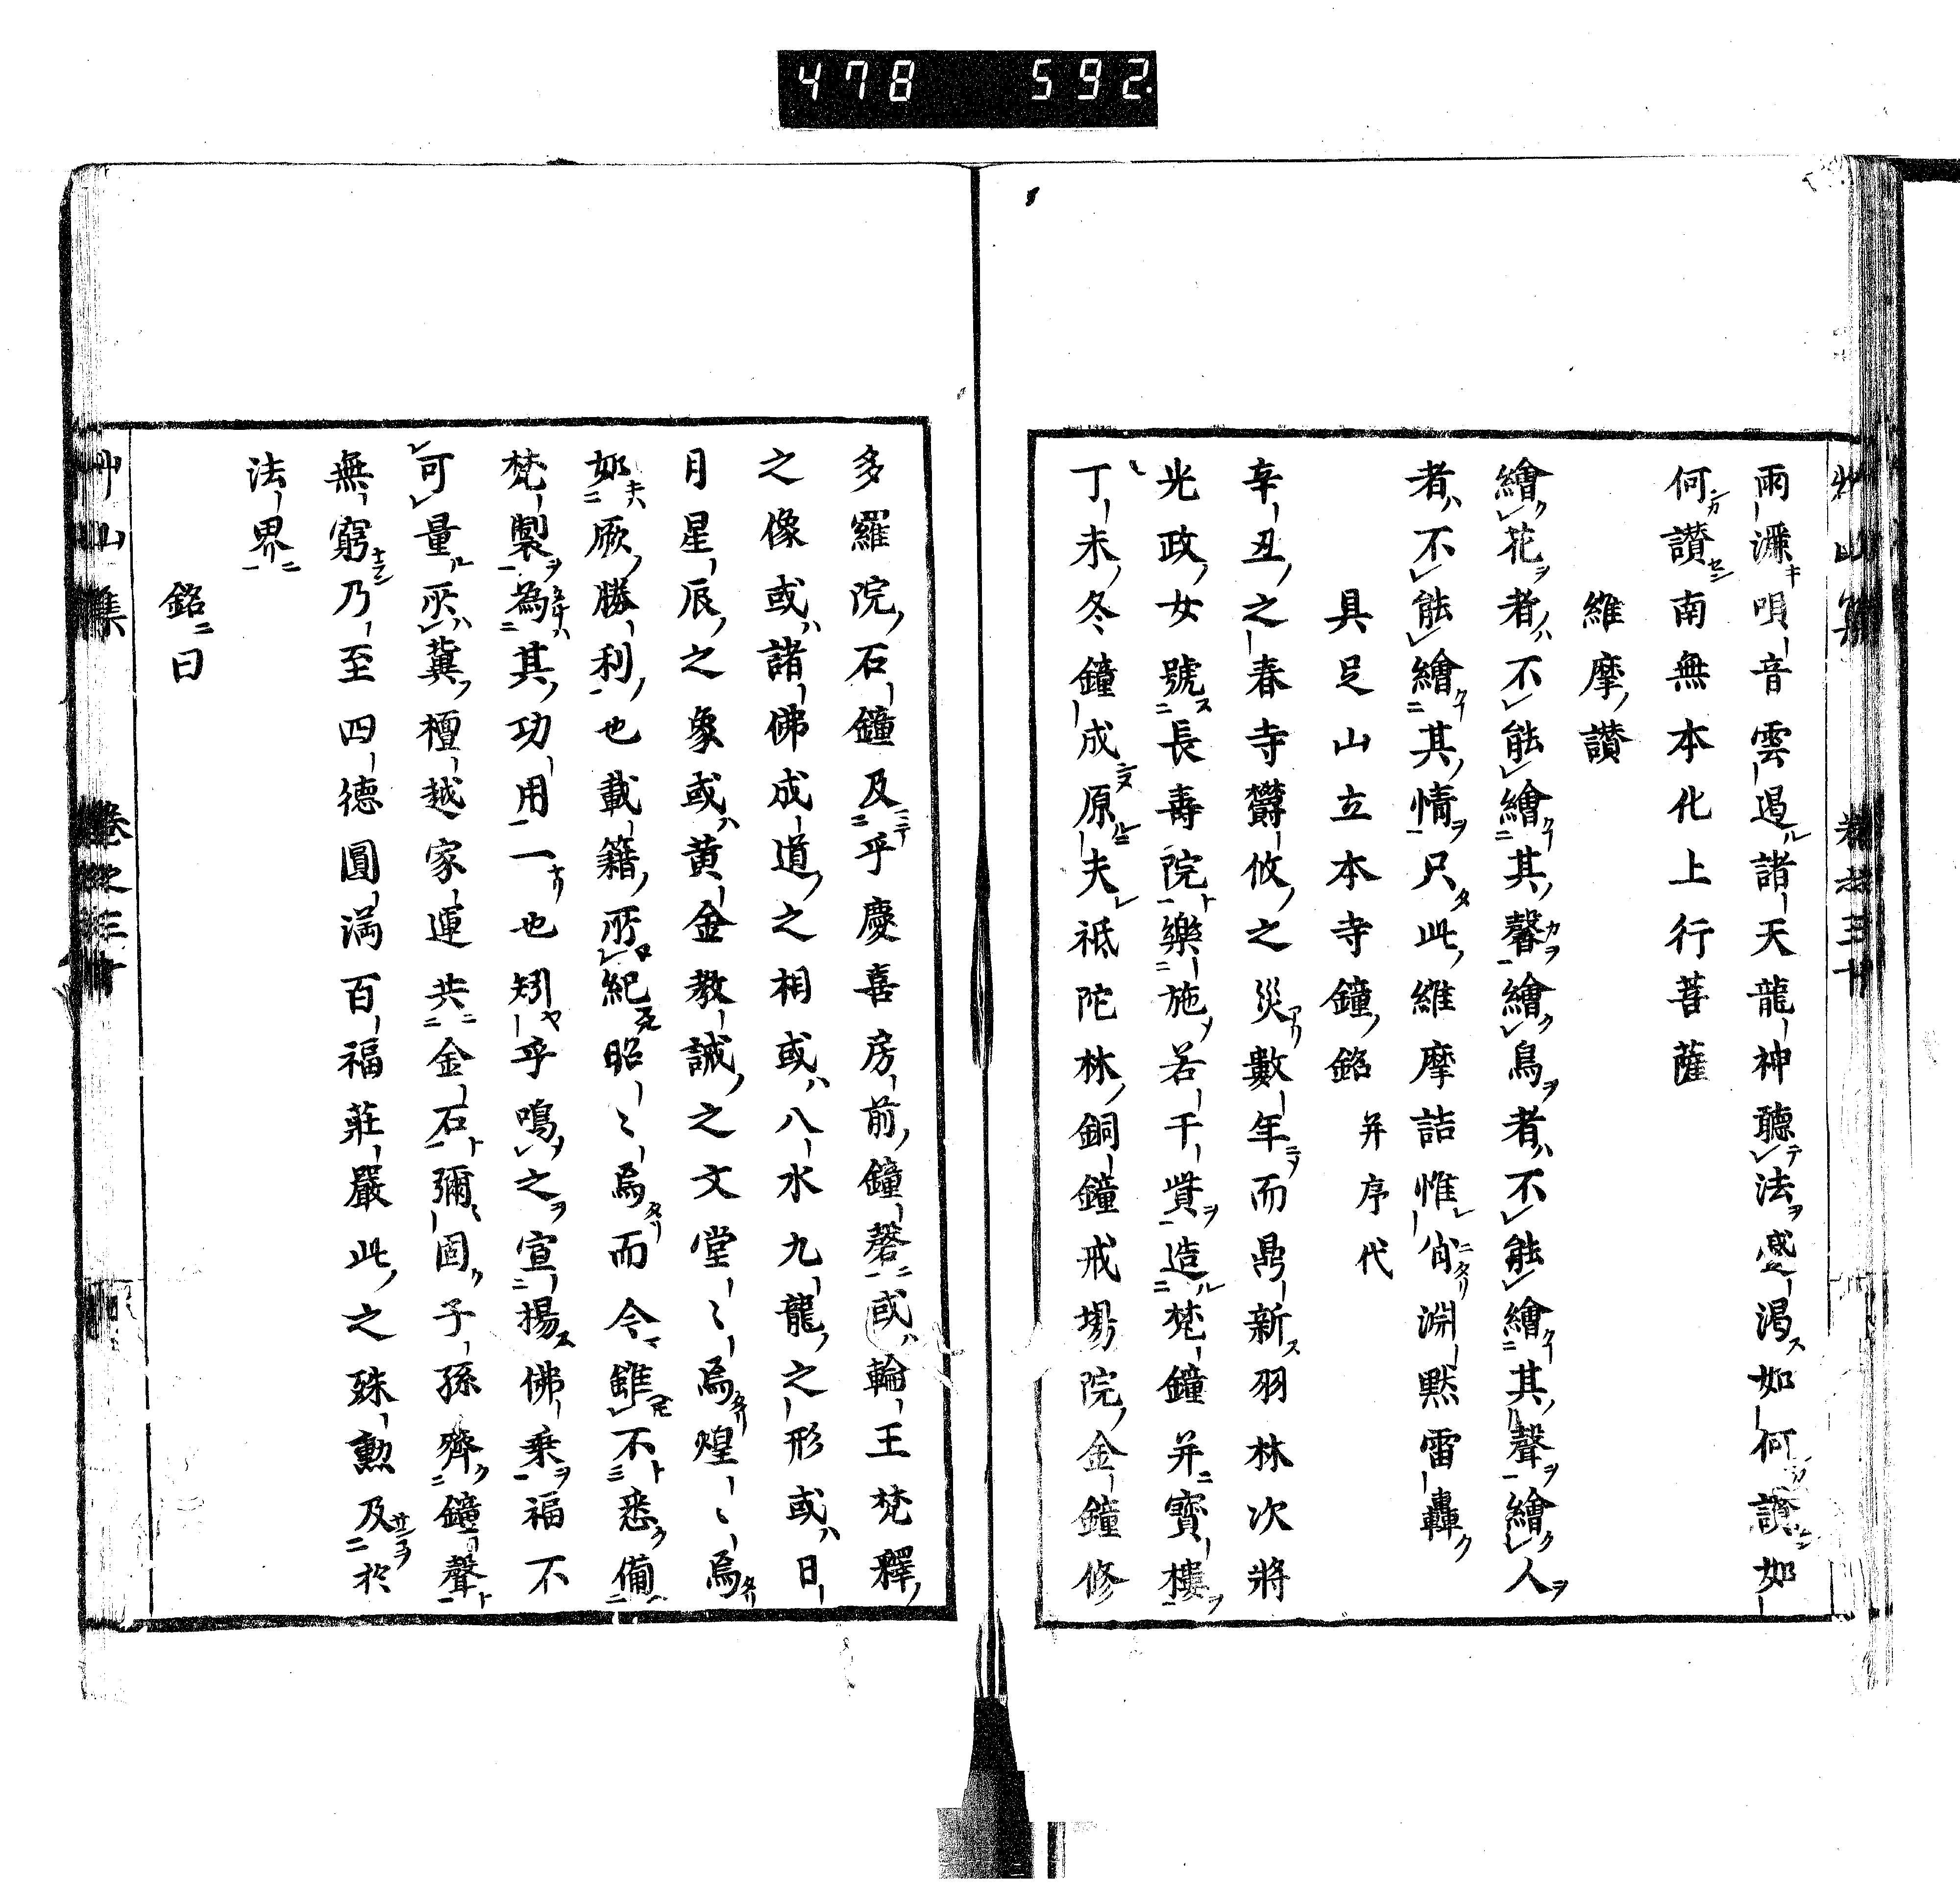 478 592
雨濺唄音雲遏諸天龍神聽法感渴如何讃如
何讃南無本化上行菩薩
維摩讃
繪花者不能繪其馨繪鳥者不能繪其聲繪人
者不能繪其情只此維摩詰惟肖淵默雷轟
具足山立本寺鐘銘 并序代
辛丑之春寺欝攸之災數年而鼎新羽林次將
光政女號長壽院樂施若干貲造梵鐘并寳樓
丁未冬鐘成原夫祗陀林銅鐘戒場院金鐘修
多羅院石鐘及乎慶喜房前鐘磬或輪王梵釋
之像或諸佛成道之相或八水九龍之形或日
月星辰之象或黄金教誡之文堂〻焉煌〻焉
如厥勝利也載籍所紀昭〻焉而今雖不悉備
梵製為其功用一也矧乎鳴之宣揚佛乗福不
可量所冀檀越家運共金石彌固子孫齊鐘聲
無窮乃至四德圓満百福莊嚴此之殊勲及於
法界
銘曰
艸山集 卷之三十